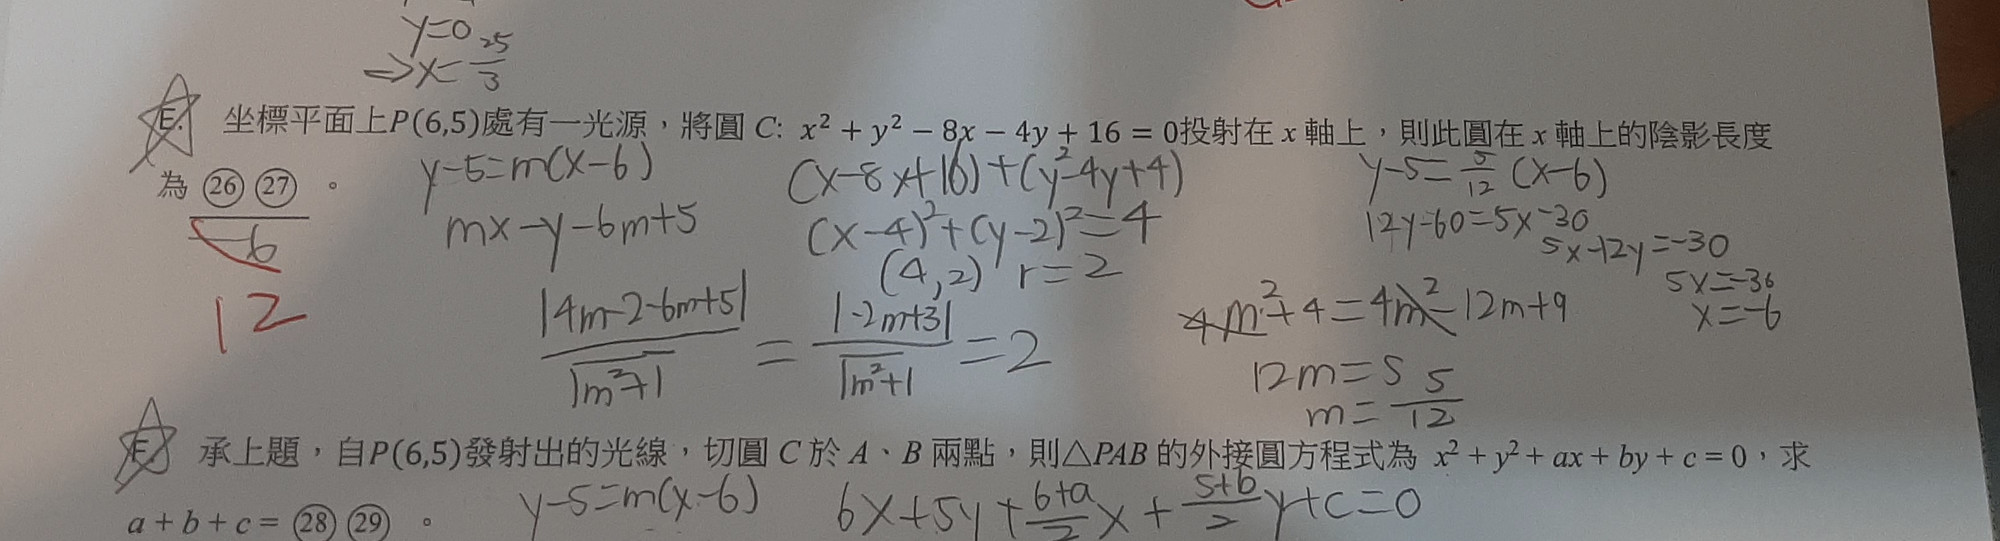 y=0
⇒x=25/3
E. 坐標平面上P(6,5)處有一光源，將圓 C: x² + y² − 8x − 4y + 16 = 0投射在 x 軸上，則此圓在 x 軸上的陰影長度
為 ㉖ ㉗ 。
-6
12
y-5=m(x-6)
mx-y-6m+5
(x-8x+16)+(y²-4y+4)
(x-4)²+(y-2)²=4
(4,2) r=2
|4m-2-6m+5|/√m²+1 = |-2m+3|/√m²+1 =2
y-5=5/12(x-6)
12y-60=5x-30
5x-12y=-30
5x=-36
x=-6
4m²+4=4m²-12m+9
12m=5
m=5/12
F. 承上題，自P(6,5)發射出的光線，切圓 C 於 A、B 兩點，則△PAB 的外接圓方程式為 x² + y² + ax + by + c = 0，求
a + b + c = ㉘ ㉙ 。
y-5=m(x-6)
6x+5y+6+a/2 x+5+b/2 y+c=0